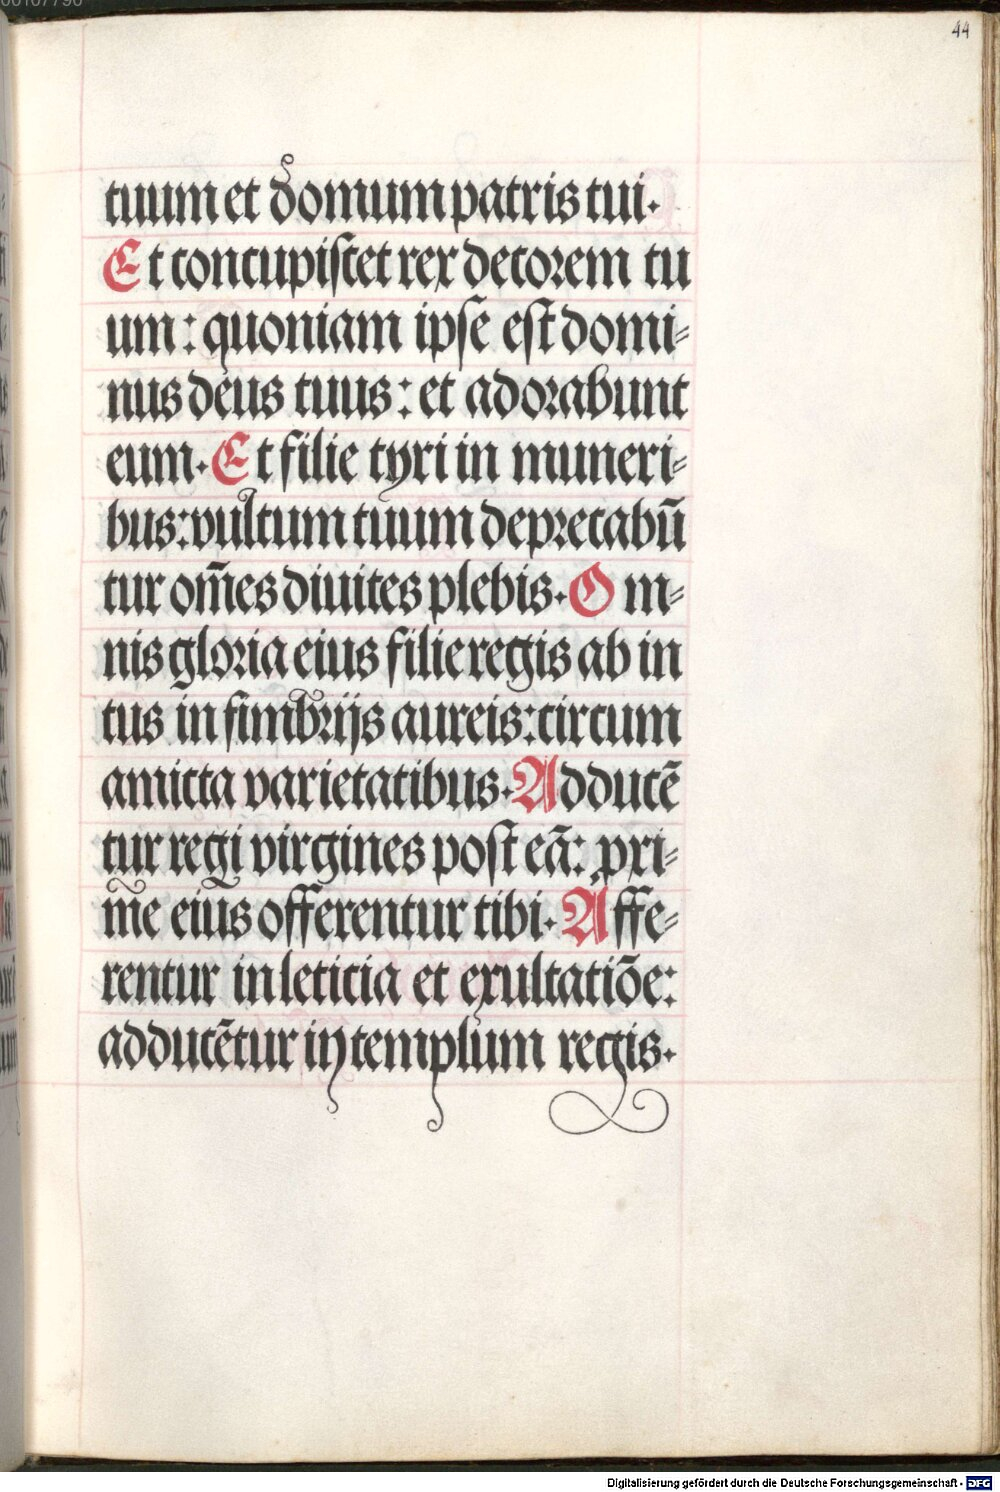 44
tuum et domum patris tui.
Et concupiscet rex decorem tu
um: quoniam ipse est domi-
nus deus tuus: et adorabunt
eum. Et filie tyri in muneri-
bus: vultum tuum deprecabū
tur om̄es diuites plebis. Om-
nis gloria eius filie regis ab in
tus in fimbrijs aureis: circum
amicta varietatibus. Adducē
tur regi virgines post eā: pxi-
me eius offerentur tibi. Affe-
rentur in leticia et exultatiōe:
adducētur in templum regis.
Digitalisierung gefördert durch die Deutsche Forschungsgemeinschaft - DFG